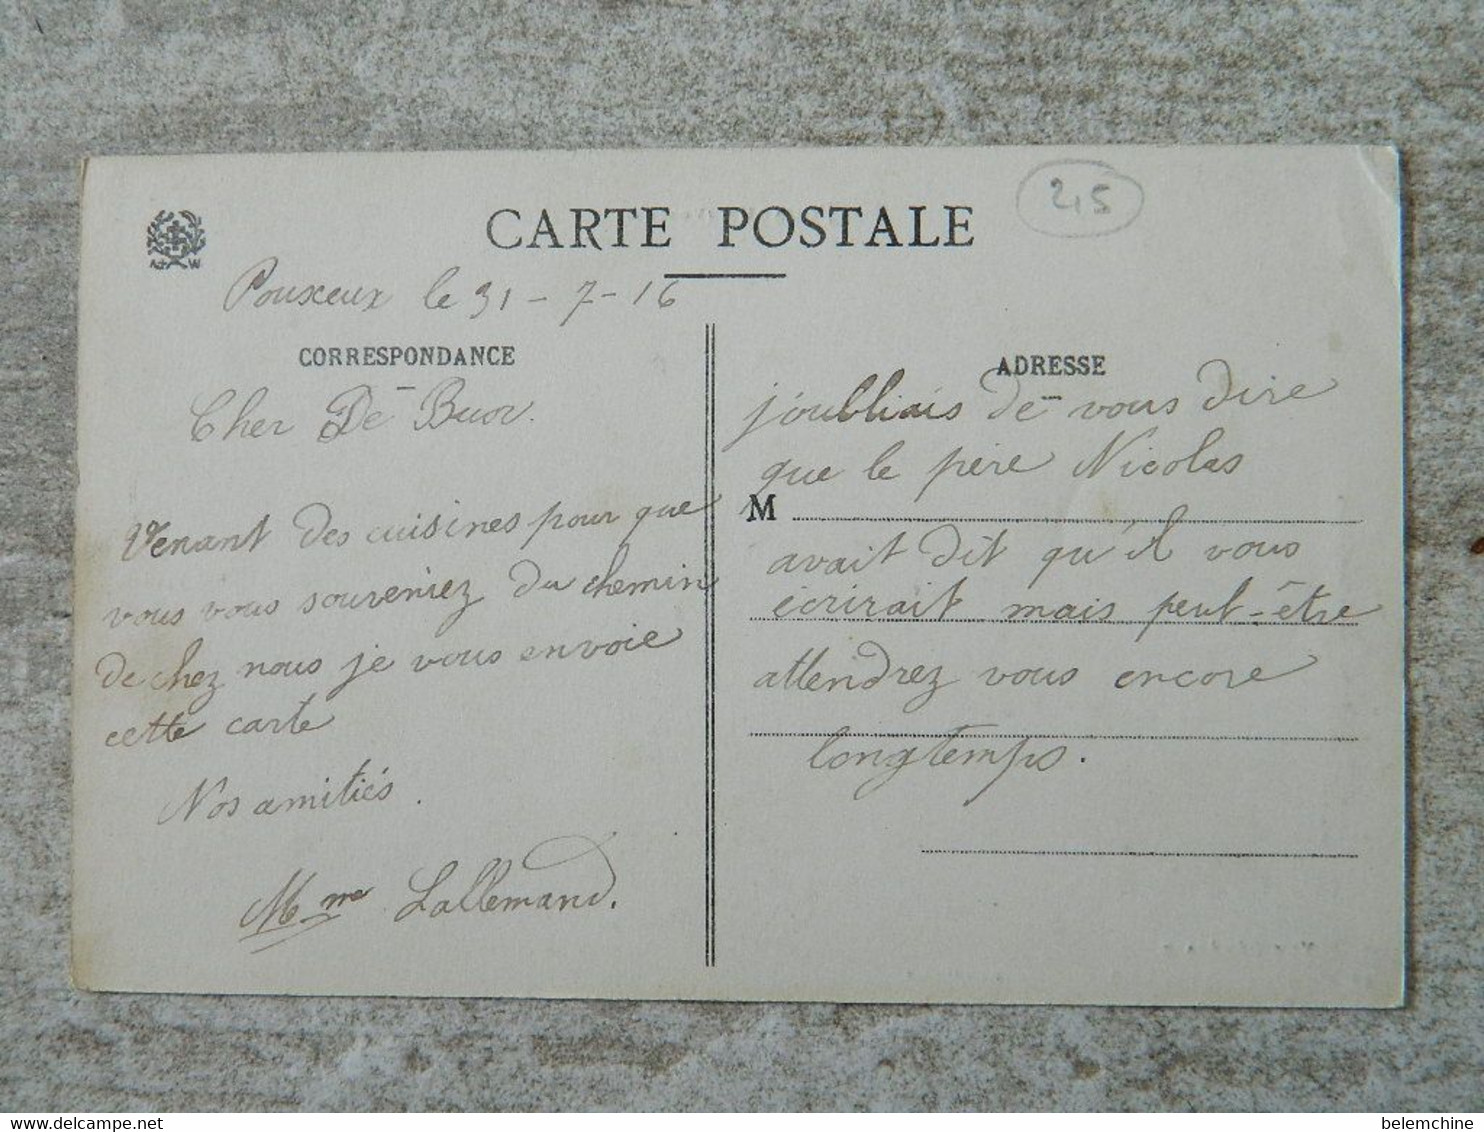 CARTE POSTALE
2,5
Pouxeux le 31-7-16
CORRESPONDANCE
Cher De Buor.
Venant des cuisines pour que
vous vous souveniez du chemin
de chez nous je vous envoie
cette carte
Nos amitiés.
Mme Lallemand.
ADRESSE
j'oubliais de vous dire
que le père Nicolas
M
avait dit qu'il vous
écrirait mais peut-être
attendrez vous encore
longtemps.
delcampe.net
belemchine